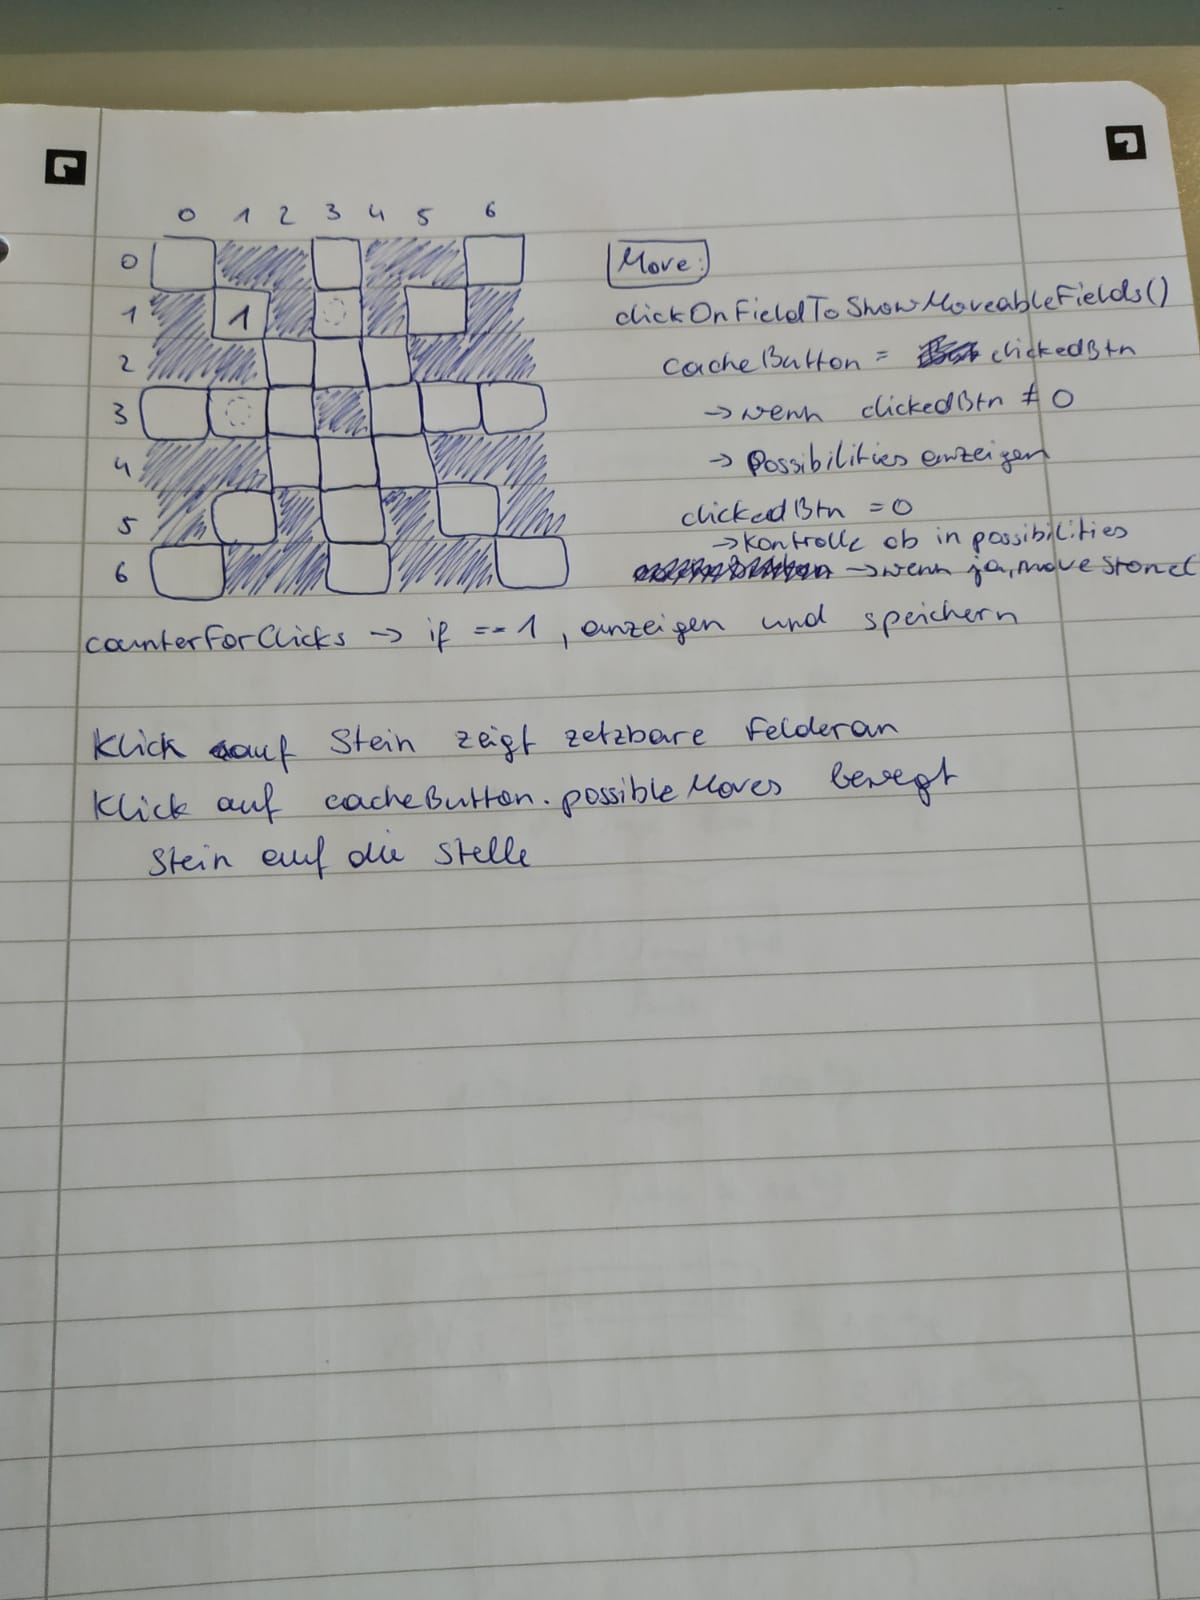 0 1 2 3 4 5 6
0
1 1
2
3
4
5
6
Move:
clickOnFieldToShowMoveableFields()
cacheButton = clickedBtn
-> wenn clickedBtn ≠ 0
-> Possibilities anzeigen
clickedBtn = 0
-> Kontrolle ob in possibilities
-> wenn ja, move Stone
counterForClicks -> if == 1, anzeigen und speichern
Klick auf Stein zeigt zetzbare Felder an
Klick auf cacheButton.possibleMoves bewegt
Stein auf die Stelle